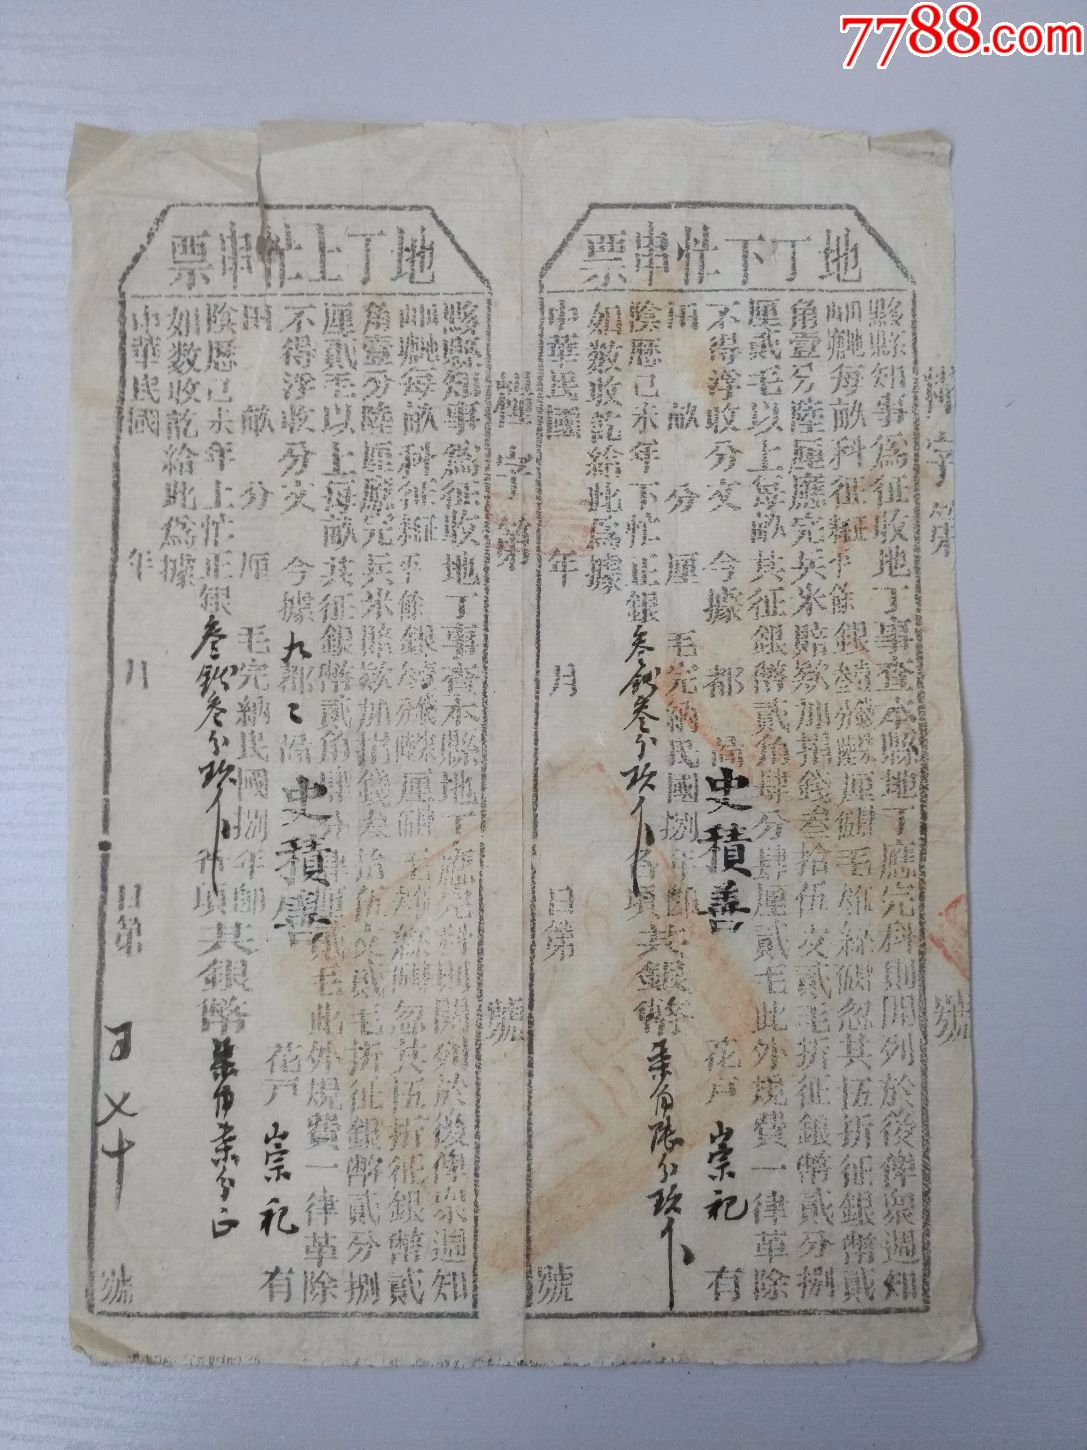 7788.com
地丁下忙串票
縣縣知事爲征收地丁事查本縣地丁應完科則開列於後俾衆週知
每畝科征
角壹分陸厘應完兵米賠款加捐錢叁拾伍文貳毛折征銀幣貳分捌
厘貳毛以上每畝共征銀幣貳角肆分肆厘貳毛此外規費一律革除
不得浮收分文 今據 都 啚 史積善 花戶 崇祀 有
田 畝 分 厘 毛完納民國捌年
陰歷己未年下忙正銀叁錢叁分玖 各項共銀幣柒角陸分玖
如數收訖給此爲據
中華民國 年 月 日第 號
字第 號
地丁上忙串票
縣縣知事爲征收地丁事查本縣地丁應完科則開列於後俾衆週知
每畝科征
角壹分陸厘應完兵米賠款加捐錢叁拾伍文貳毛折征銀幣貳分捌
厘貳毛以上每畝共征銀幣貳角肆分肆厘貳毛此外規費一律革除
不得浮收分文 今據 九都 啚 史積善 花戶 崇祀 有
田 畝 分 厘 毛完納民國捌年
陰歷己未年上忙正銀叁錢叁分玖 項共銀幣柒角柒分正
如數收訖給此爲據
中華民國 年 月 日第 號